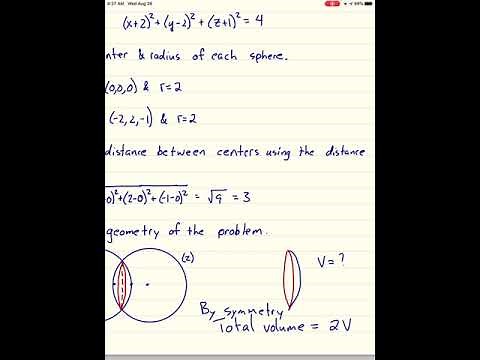 8:37 AM Wed Aug 26 64%
(x+2)² + (y-2)² + (z+1)² = 4
nter & radius of each sphere.
(0,0,0) & r=2
(-2,2,-1) & r=2
distance between centers using the distance
0)² + (2-0)² + (-1-0)² = √9 = 3
geometry of the problem.
(2)
V = ?
By symmetry
Total volume = 2V